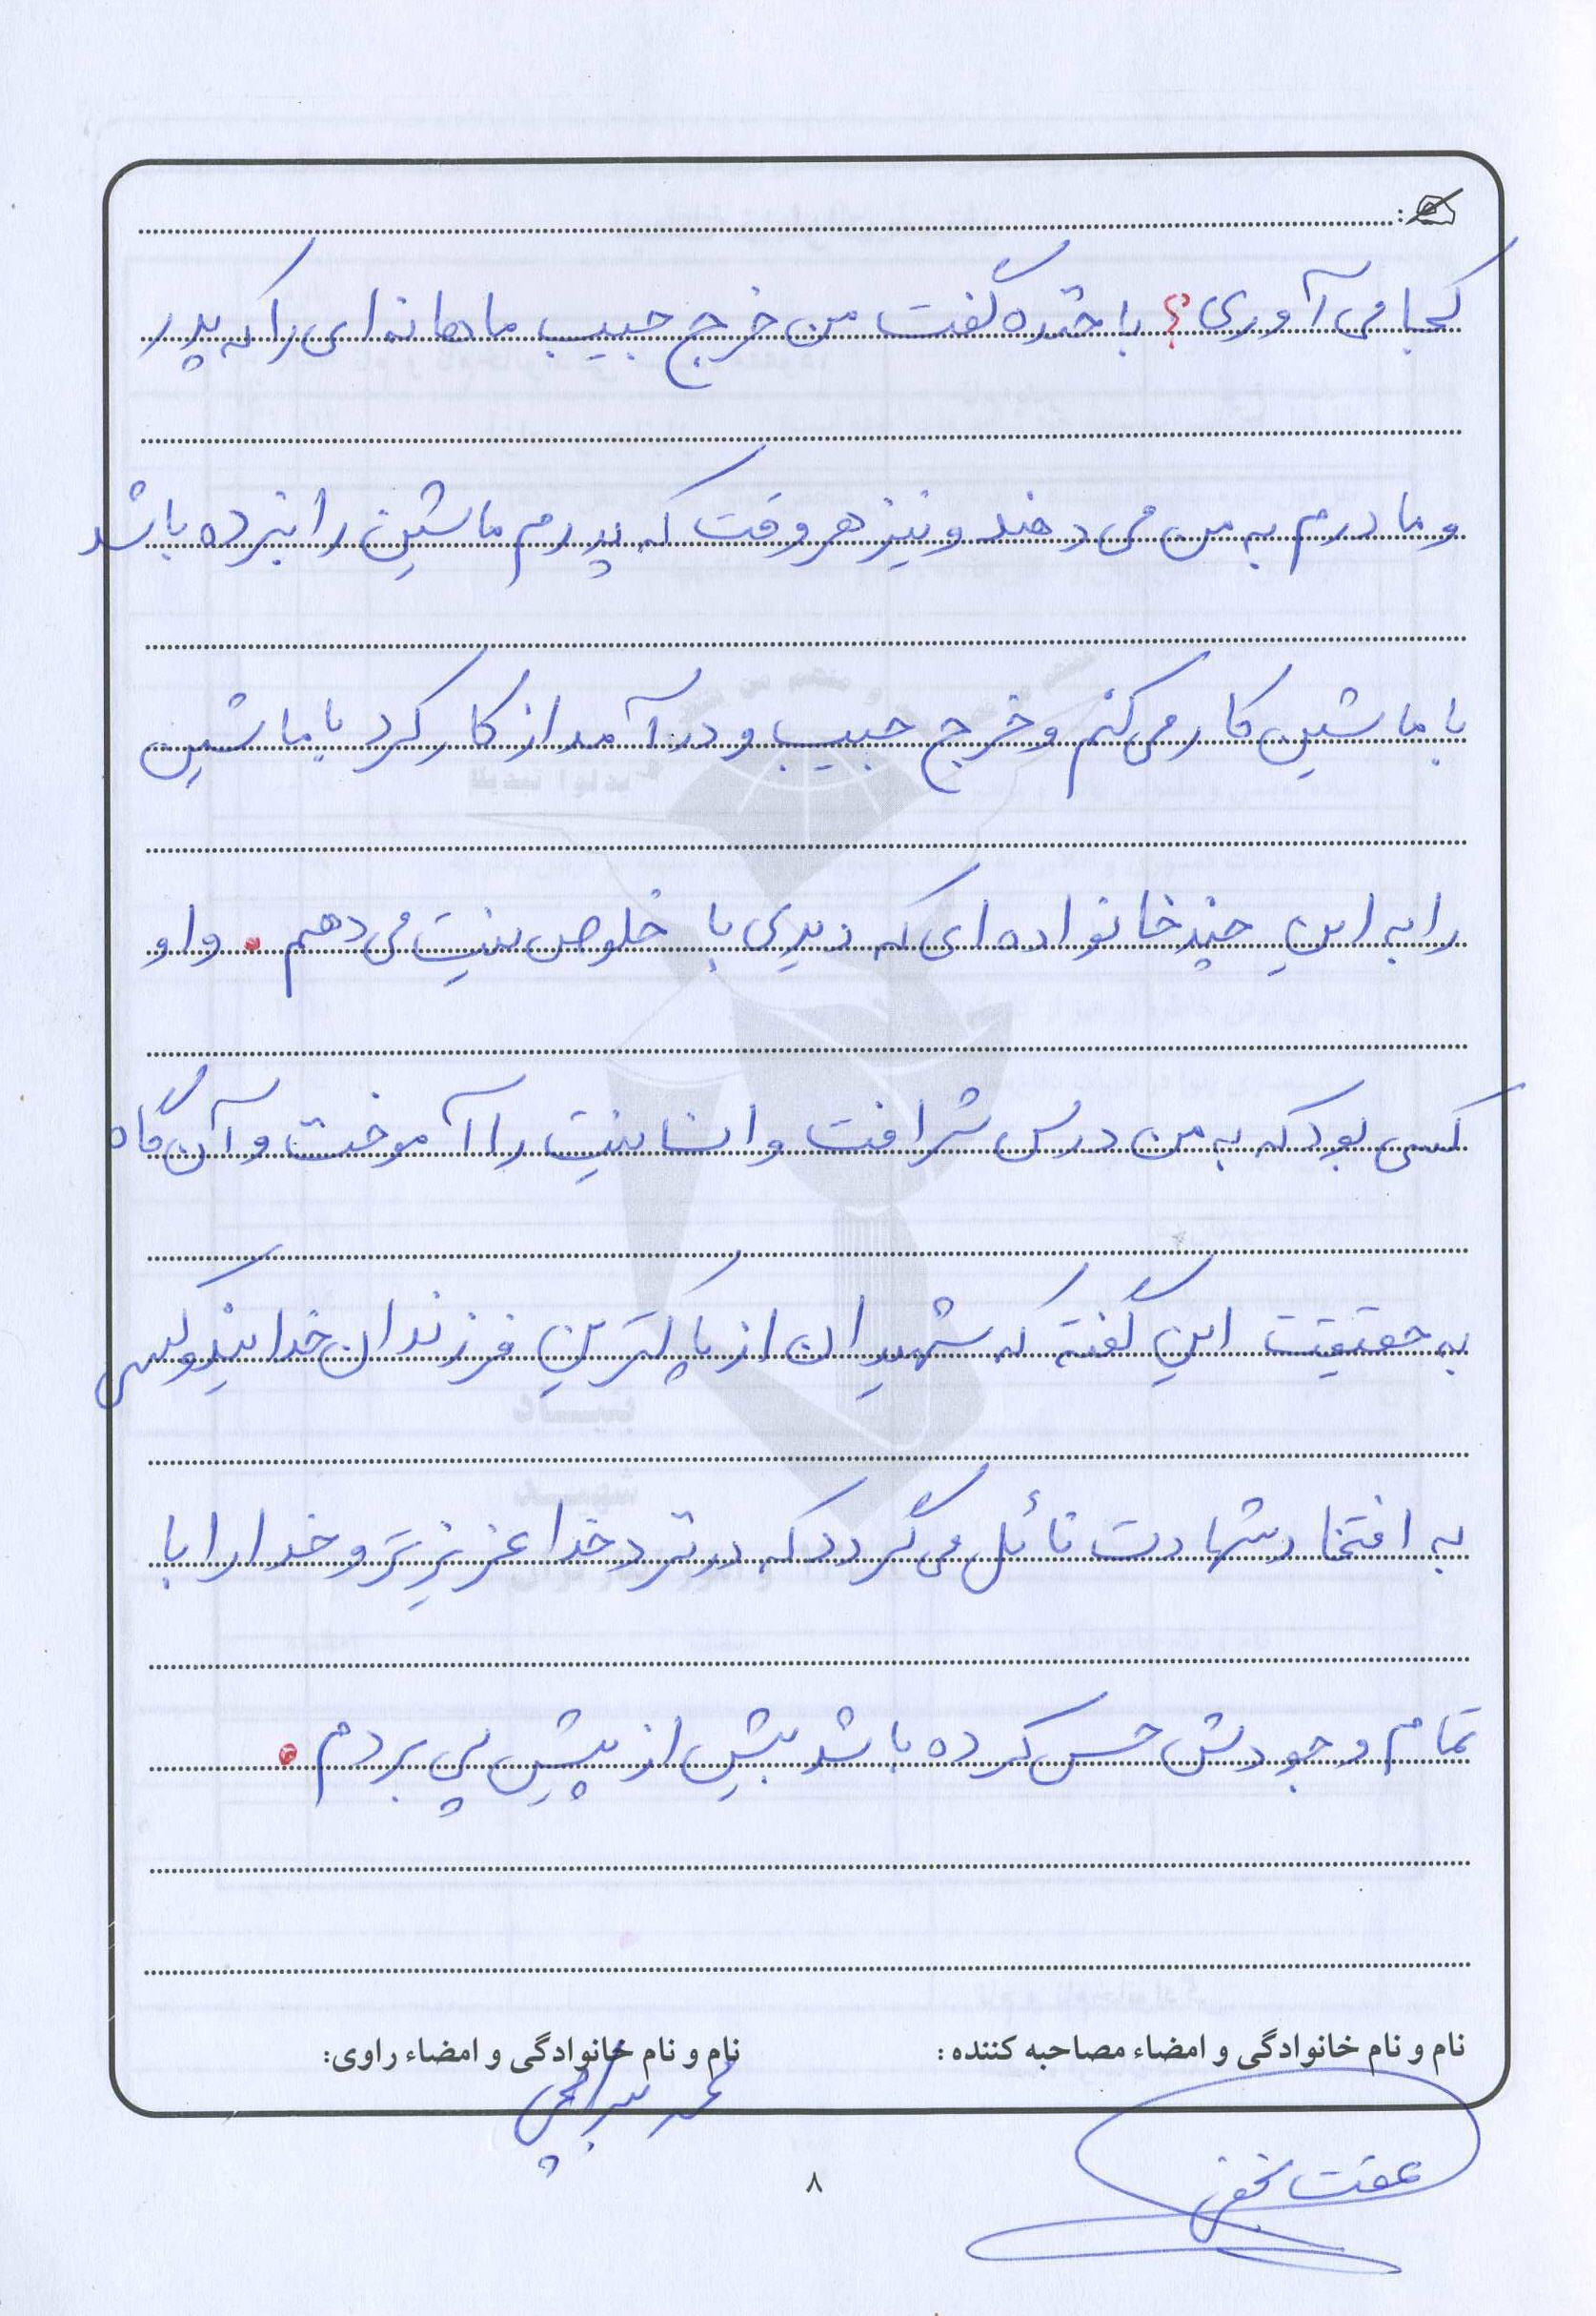 کجا می آوری؟ با خنده گفت من خرج جیب ماهانه ای را که پدر
و مادرم به من می دهند و نیز هر وقت که پدرم ماشین را نبرده باشد
با ماشین کار می کنم و خرج جیب و درآمد از کار کرد با ماشین
را به این چند خانواده ای که دیدی با خلوص نیت می دهم . و او
کسی بود که به من درس شرافت و انسانیت را آموخت و آن گاه
به حقیقت این گفته که شهیدان از پاکترین فرزندان خدایند و کسی
به افتخار شهادت نائل می گردد که در نزد خدا عزیزتر و خدا را با
تمام وجودش حس کرده باشد بیش از پیش پی بردم .
نام و نام خانوادگی و امضاء مصاحبه کننده : نام و نام خانوادگی و امضاء راوی:
محمد
عفت نجفی
۸